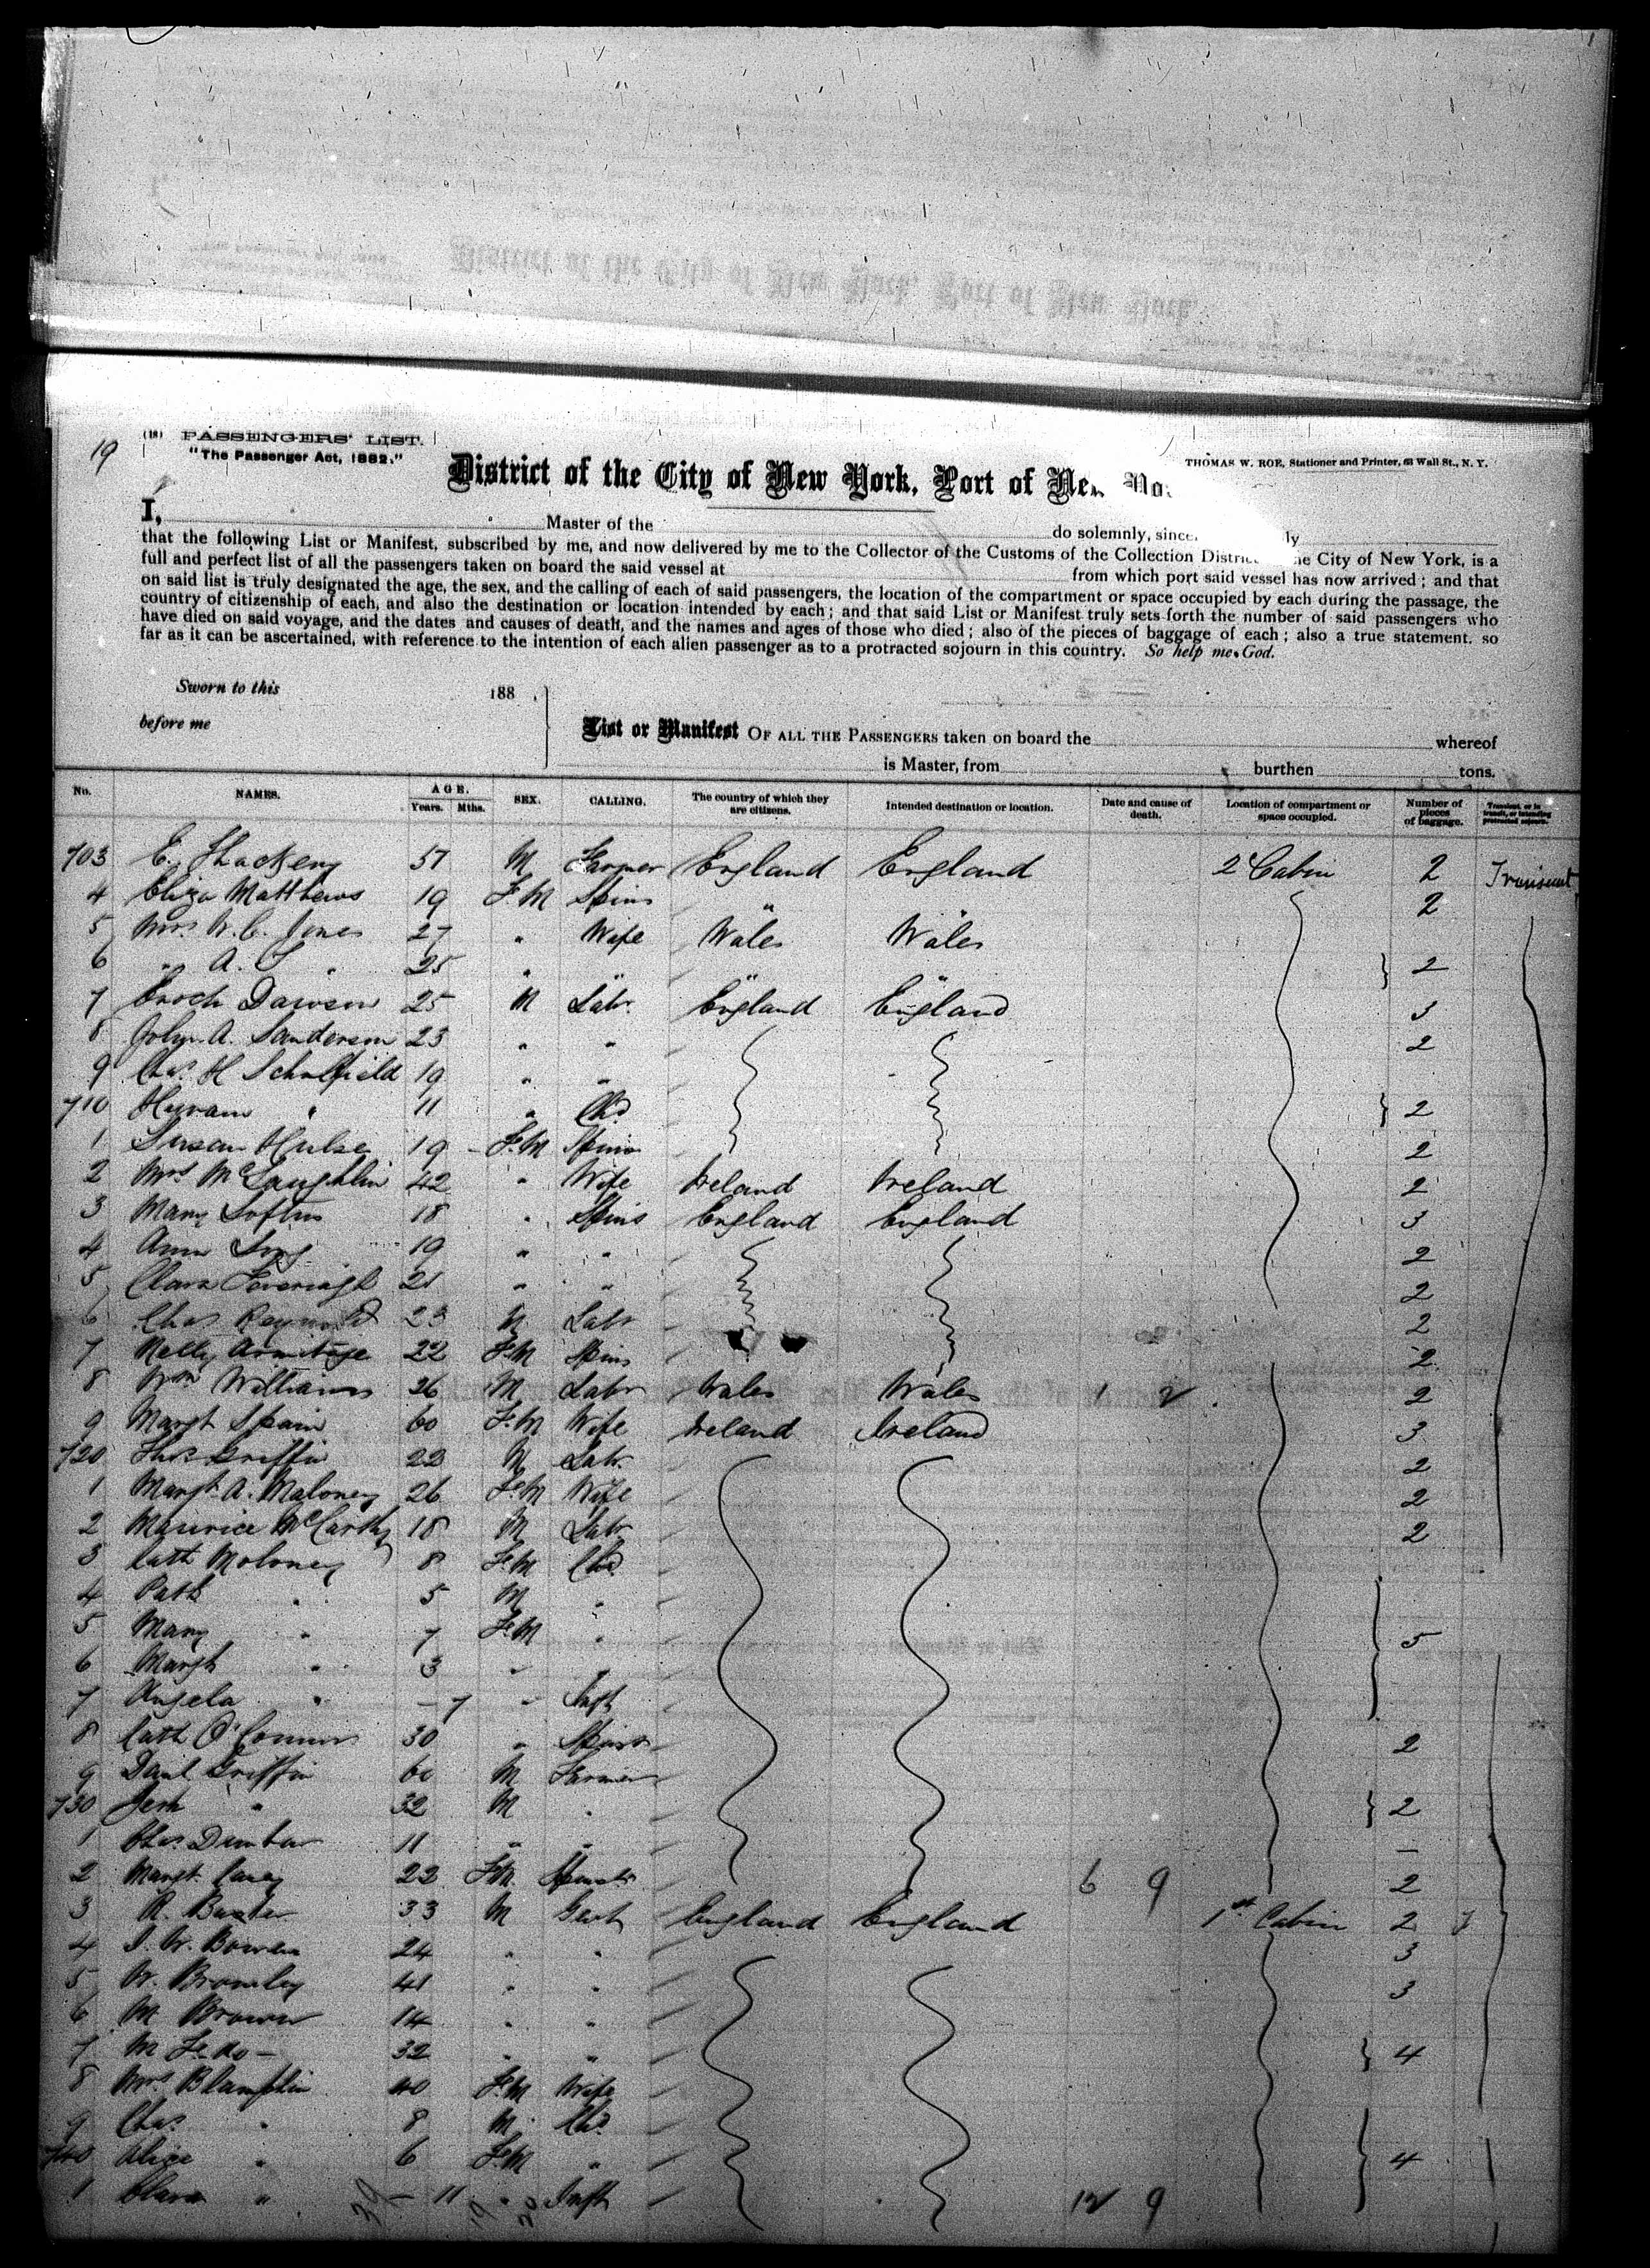 19
(18) PASSENGERS' LIST.
"The Passenger Act, 1882."
THOMAS W. ROE, Stationer and Printer, 63 Wall St., N. Y.
District of the City of New York, Port of New Yo
I, Master of the do solemnly, since ly
that the following List or Manifest, subscribed by me, and now delivered by me to the Collector of the Customs of the Collection Distric he City of New York, is a
full and perfect list of all the passengers taken on board the said vessel at from which port said vessel has now arrived; and that
on said list is truly designated the age, the sex, and the calling of each of said passengers, the location of the compartment or space occupied by each during the passage, the
country of citizenship of each, and also the destination or location intended by each; and that said List or Manifest truly sets forth the number of said passengers who
have died on said voyage, and the dates and causes of death, and the names and ages of those who died; also of the pieces of baggage of each; also a true statement, so
far as it can be ascertained, with reference to the intention of each alien passenger as to a protracted sojourn in this country. So help me God.
Sworn to this 188 .
before me
List or Manifest OF ALL THE PASSENGERS taken on board the whereof
is Master, from burthen tons.
No. NAMES. AGE. Years. Mths. SEX. CALLING. The country of which they are citizens. Intended destination or location. Date and cause of death. Location of compartment or space occupied. Number of pieces of baggage. Transient, or in transit, or intending protracted sojourn.
703 E. Thackery 57 M Farmer England England 2 Cabin 2 Transient
4 Eliza Matthews 19 FM Spins " " 2
5 Mrs W. C. Jones 27 " Wife Wales Wales
6 " A. J. " 25 " " " " 2
7 Enoch Dawson 25 M Labr England England 3
8 John A. Sanderson 23 " " 2
9 Chas H Scholfield 19 " "
710 Hiram " 11 " Chd 2
1 Susan Hulse 19 FM Spins 2
2 Mrs McLaughlin 42 " Wife Ireland Ireland 2
3 Mary Loftus 18 " Spins England England 3
4 Ann Long 19 " " 2
5 Clara 21 " " 2
6 Chas 23 M Labr 2
7 Nelly Armitage 22 FM Spins 2
8 Wm Williams 26 M Labr Wales Wales 1 2 2
9 Margt Spain 60 FM Wife Ireland Ireland 3
720 Thos Griffin 22 M Labr 2
1 Margt A. Maloney 26 FM Wife 2
2 Maurice McCarthy 18 M Labr 2
3 Cath Moloney 8 FM Chd
4 Patk " 5 M "
5 Mary " 7 FM " 5
6 Margt " 3 " "
7 Angela " – 7 " Inft
8 Cath O'Connor 30 " Spins 2
9 Danl Griffin 60 M Farmer
730 Jerh " 32 M " 2
1 Chas Dunbar 11 " " –
2 Margt Carey 22 FM Spinstr 6 9 2
3 R. Baxter 33 M Gent England England 1st Cabin 2
4 J. W. Bowen 24 " " 3
5 W. Bromley 41 " " 3
6 M Brown 14 " "
7 M 32 " " 4
8 Mrs Blamphin 40 FM Wife
9 Chas " 8 M Chd
740 Alice " 6 FM " 4
1 Clara " – 11 " Inft 12 9
39 19 20